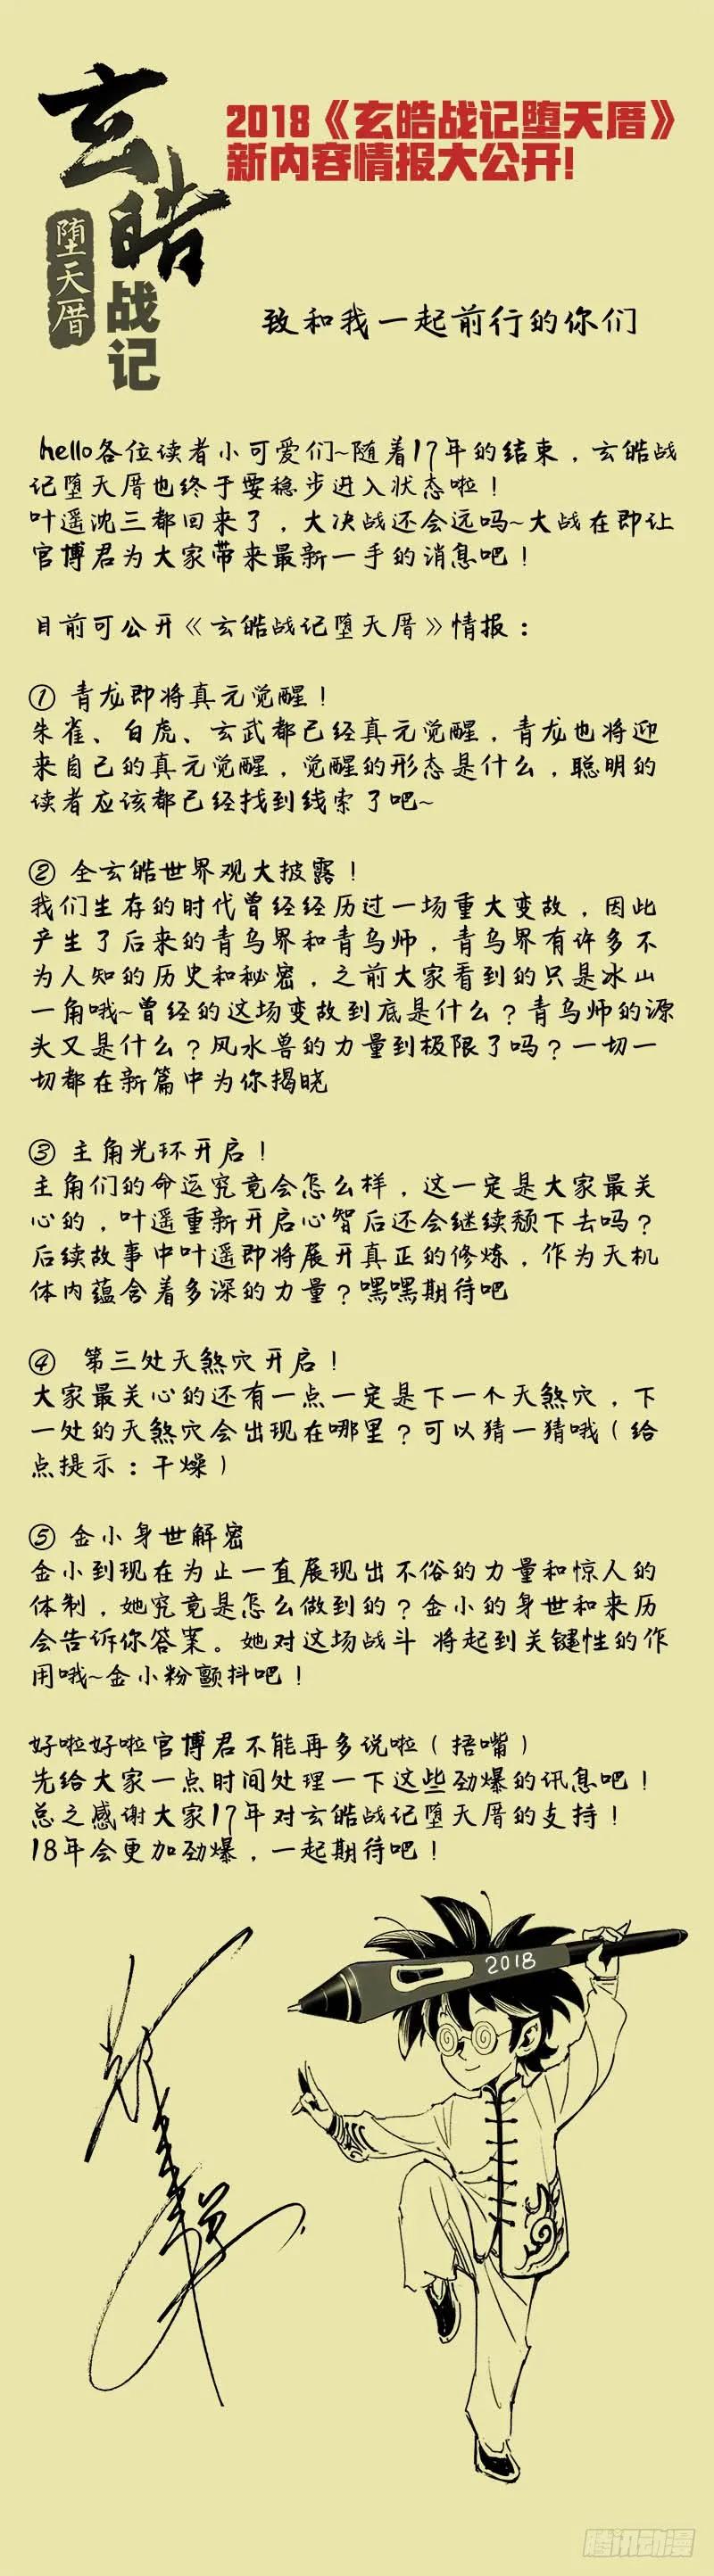 玄皓战记
堕天厝
2018《玄皓战记堕天厝》
新内容情报大公开!
致和我一起前行的你们
hello各位读者小可爱们~随着17年的结束，玄皓战
记堕天厝也终于要稳步进入状态啦！
叶遥沈三都回来了，大决战还会远吗~大战在即让
官博君为大家带来最新一手的消息吧！
目前可公开《玄皓战记堕天厝》情报：
① 青龙即将真元觉醒！
朱雀、白虎、玄武都已经真元觉醒，青龙也将迎
来自己的真元觉醒，觉醒的形态是什么，聪明的
读者应该都已经找到线索了吧~
② 全玄皓世界观大披露！
我们生存的时代曾经经历过一场重大变故，因此
产生了后来的青乌界和青乌师，青乌界有许多不
为人知的历史和秘密，之前大家看到的只是冰山
一角哦~曾经的这场变故到底是什么？青乌师的源
头又是什么？风水兽的力量到极限了吗？一切一
切都在新篇中为你揭晓
③ 主角光环开启！
主角们的命运究竟会怎么样，这一定是大家最关
心的，叶遥重新开启心智后还会继续颓下去吗？
后续故事中叶遥即将展开真正的修炼，作为天机
体内蕴含着多深的力量？嘿嘿期待吧
④ 第三处天煞穴开启！
大家最关心的还有一点一定是下一个天煞穴，下
一处的天煞穴会出现在哪里？可以猜一猜哦（给
点提示：干燥）
⑤ 金小身世解密
金小到现在为止一直展现出不俗的力量和惊人的
体制，她究竟是怎么做到的？金小的身世和来历
会告诉你答案。她对这场战斗 将起到关键性的作
用哦~金小粉颤抖吧！
好啦好啦官博君不能再多说啦（捂嘴）
先给大家一点时间处理一下这些劲爆的讯息吧！
总之感谢大家17年对玄皓战记堕天厝的支持！
18年会更加劲爆，一起期待吧！
2018
腾讯动漫